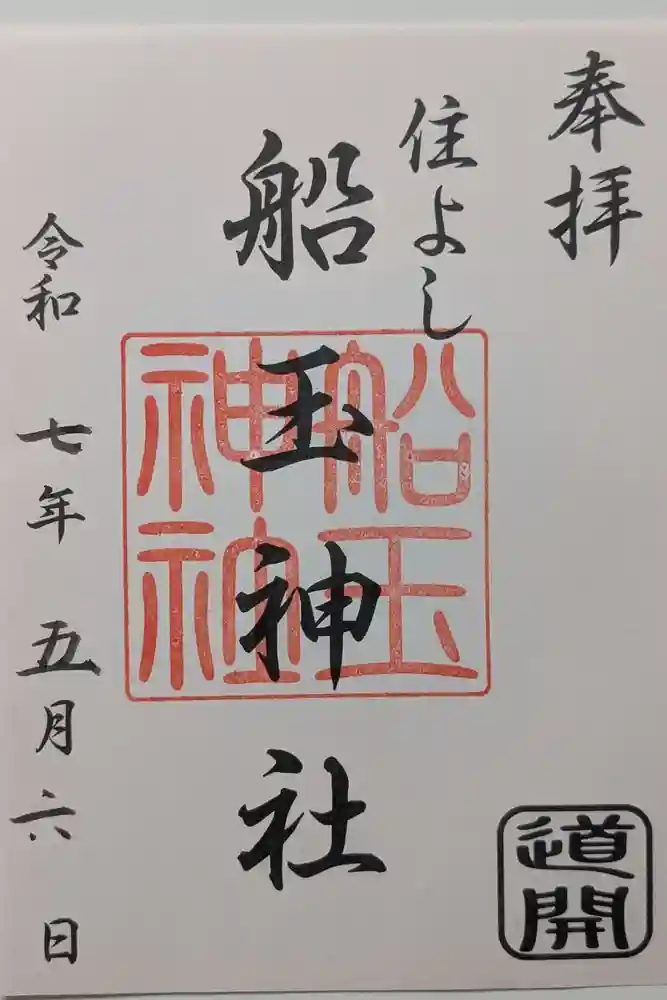 奉拝
道開
住よし
船玉神社
船玉神社
令和七年五月六日